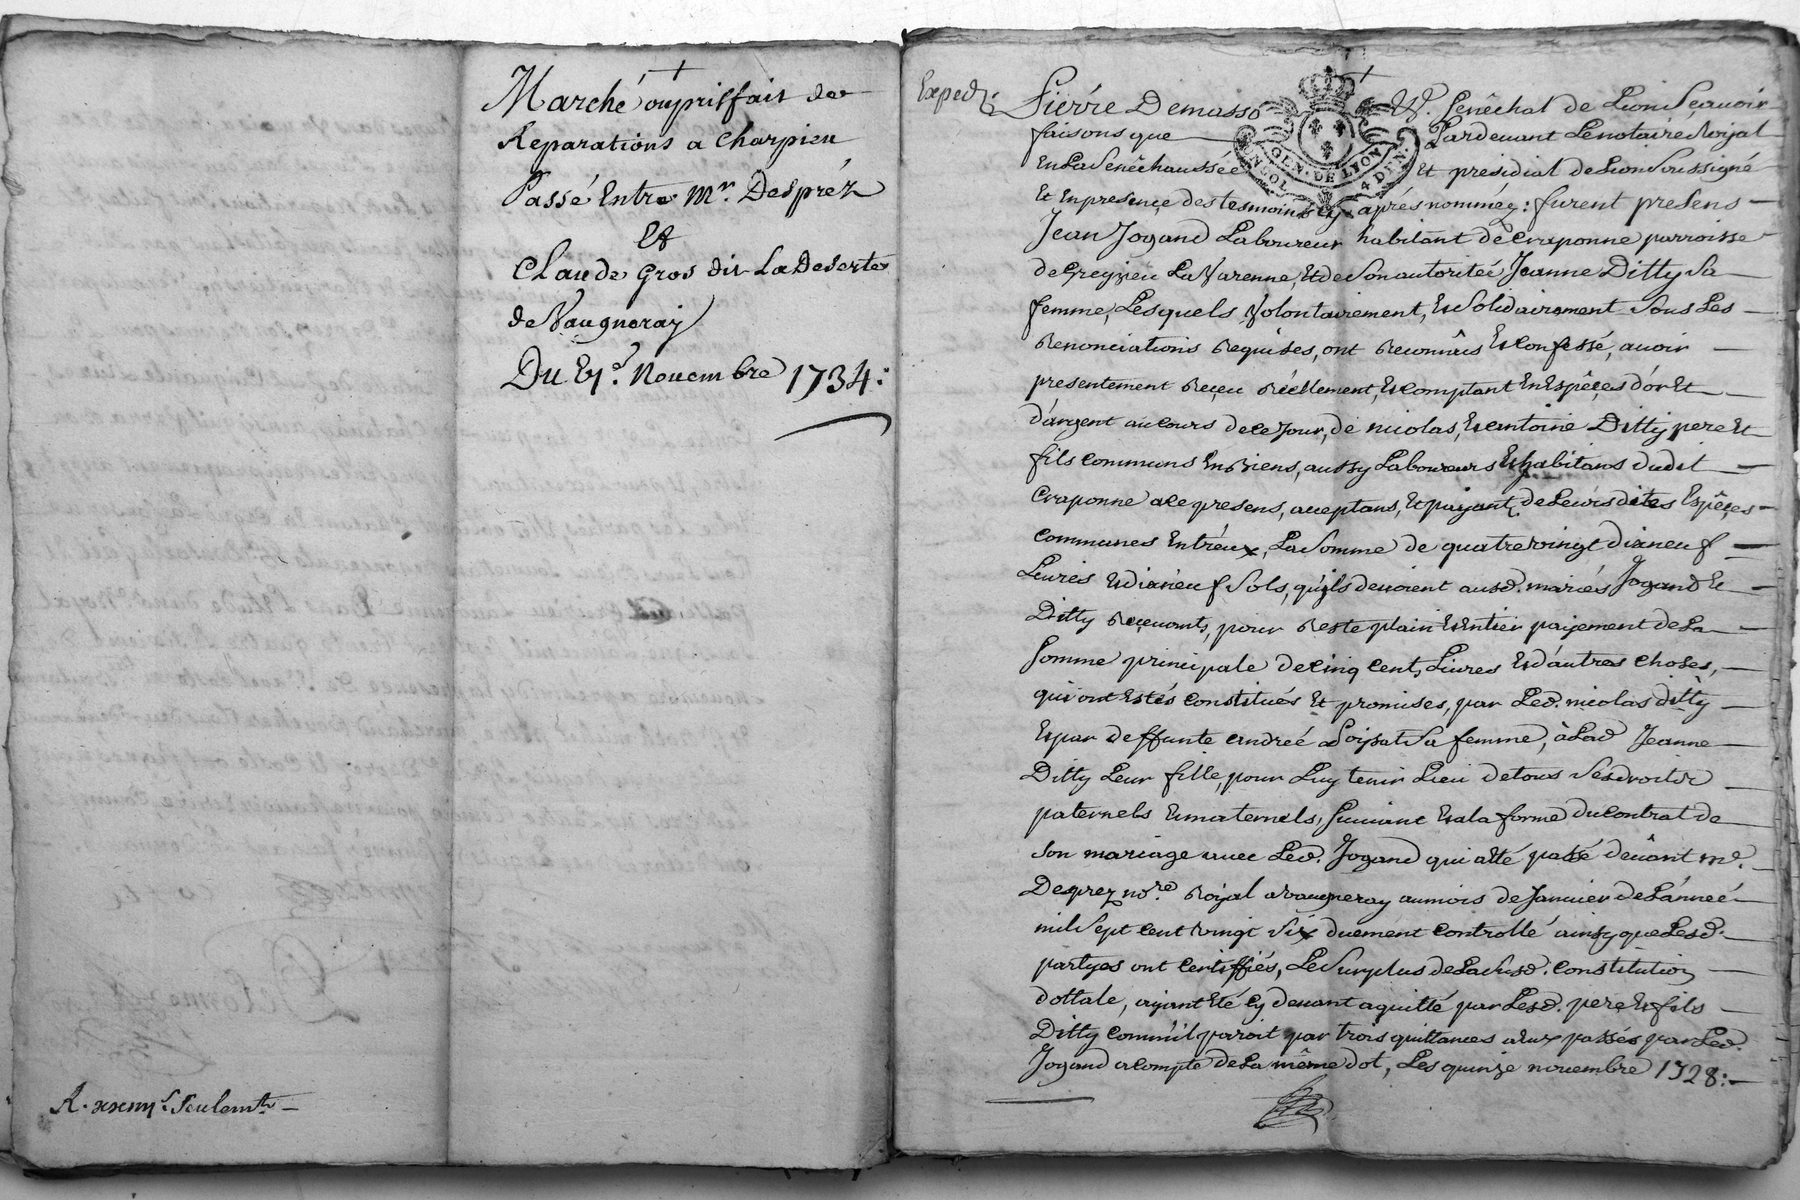 Marché ouprisfait de
Reparations a Charpieu
Passé Entre Mr. Despréz
Et
Claude Gros dit La Deserte
de Vaugneray
Novembre 1734:
Seulemt. —
Exped.
Pierre Demasso Sénéchal de Lion Sçavoir
faisons que Pardevant Lenotaire Roijal
En La Senêchaussée Et présidial de Lion Soussigné
GEN. DE LYON
4 DEN.
Et En presençe des tesmoins cy après nomméz: furent presens —
Jean Jogand Laboureur habitant de Craponne parroisse
de Greyzieu La Varenne, Et de Son autoriteé Jeanne Ditty Sa —
femme, Lesquels Volontairement, Et Solidairement Sous Les —
Renonciations Requises, ont Reconnûs Et Confessé, avoir —
presentement Reçeu Réellement, Et comptant En Espêçes d'or Et —
d'argent au cours de ce Jour, de nicolas, Et antoine Ditty pere Et
fils communs En Biens, aussy Laboureurs Et habitans dudit —
Craponne a ce presens, acceptans, Et païjant, de Leurs dites Espêçes —
communes Entréux, La Somme de quatre vingt dixneuf —
Livres Et dixneuf Sols, qu'ils devoient ausd. mariés Jogand Et —
Ditty Reçevants, pour Reste plain Et Entier paijement de La —
Somme principale de Cinq Cents Livres Et d'autres choses, —
qui ont Estés Constitués Et promises, par Led. nicolas ditty —
Et par deffunte andreé Loipat Sa femme, à Lad Jeanne —
Ditty Leur fille, pour Luy tenir Lieu de tous Ses droits —
paternels Et maternels, Suivant Et a la forme du Contrat de —
Son mariage avec Led. Jogand qui a Eté passé devant Me.
Deprez nore. Roijal a vaugneray au mois de Janvier de L'anneé —
mil Sept Cent vingt Six duement Controllé ainsy que Lesd. —
partyes ont Certiffiés, Le Surplus de La Susd. Constitution —
dottale, aijant Eté Cy devant aquitté par Lesd. pere Et fils —
Ditty comm'il paroit par trois quittances a Eux passés par Led.
Jogand a compte de La même dot, Les quinze novembre 1728: —